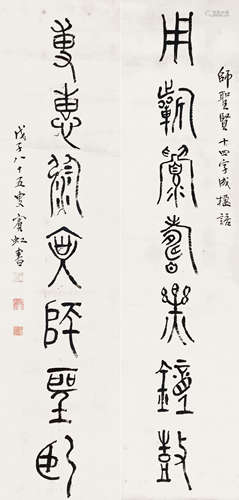 師聖賢十四字成楹語
用蘄壽樂鐘鼓
專惠師聖臤
戊子八十五叟賓虹書